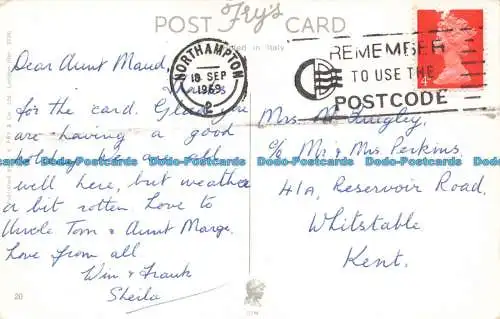 Fry's
POST CARD
Printed in Italy
NORTHAMPTON
18 SEP
1969
REMEMBER
TO USE THE
POSTCODE
4d
Dear Aunt Maud,
Thanks
for the card. Glad you
are having a good
holiday. We are all
well here, but weather
a bit rotten Love to
Uncle Tom & Aunt Marge.
Love from all
Win & Frank
Sheila
20
Mrs. M. Quigley.
c/o Mr & Mrs Perkins
41A, Reservoir Road.
Whitstable
Kent.
Postcards-Dads-Postcards